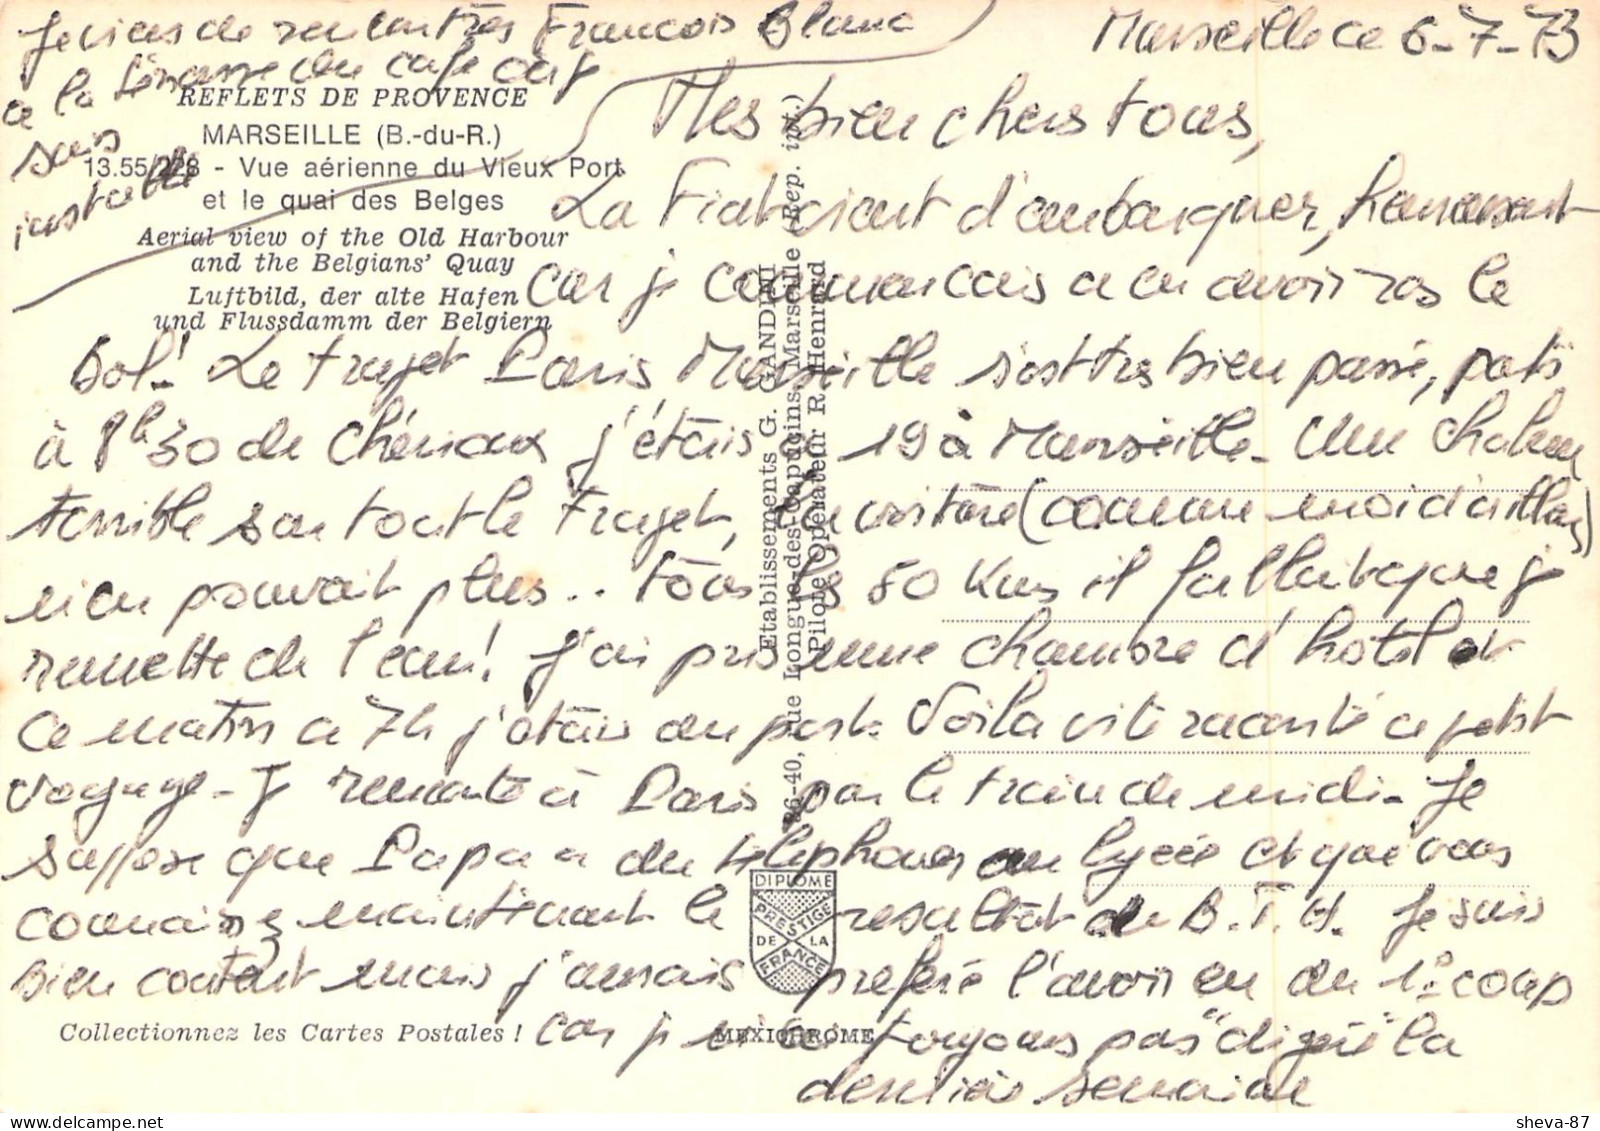 Je viens de rencontrer Francois Blanc
a la terrasse du café où je
suis
installé
Marseille ce 6-7-73
REFLETS DE PROVENCE
MARSEILLE (B.-du-R.)
13.55/228 - Vue aérienne du Vieux Port
et le quai des Belges
Aerial view of the Old Harbour
and the Belgians' Quay
Luftbild, der alte Hafen
und Flussdamm der Belgiern
Mes bien chers tous,
La Fiat vient d'embarquer, heureusement
car je commencais a en avoir ras le
bol! Le trajet Paris Marseille s'est tres bien passé, parti
à 8h30 de j'étais a 19 à Marseille. Une chaleur
terrible sur tout le trajet, la voiture (comme moi d'ailleurs)
n'en pouvait plus.. tous les 50 Kms il fallait que je
remette de l'eau! J'ai pris une chambre d'hotel et
ce matin a 7h j'étais au port. Voila vite raconté ce petit
voyage - Je remonte à Paris par le train de midi. Je
suppose que Papa a du téléphoner au lycée et que vous
connaissez maintenant le resultat du B.T.H. Je suis
bien content mais j'aurais préféré l'avoir eu du 1° coup
car je n'ai toujours pas "digéré" la
dernière semaine
Etablissements G. GANDINI
36-40, rue Longue-des-Capucins, Marseille (Rep. int.)
Pilote Opérateur R. Henrard
DIPLOME
PRESTIGE
DE LA
FRANCE
Collectionnez les Cartes Postales !
MEXICHROME
sheva-87